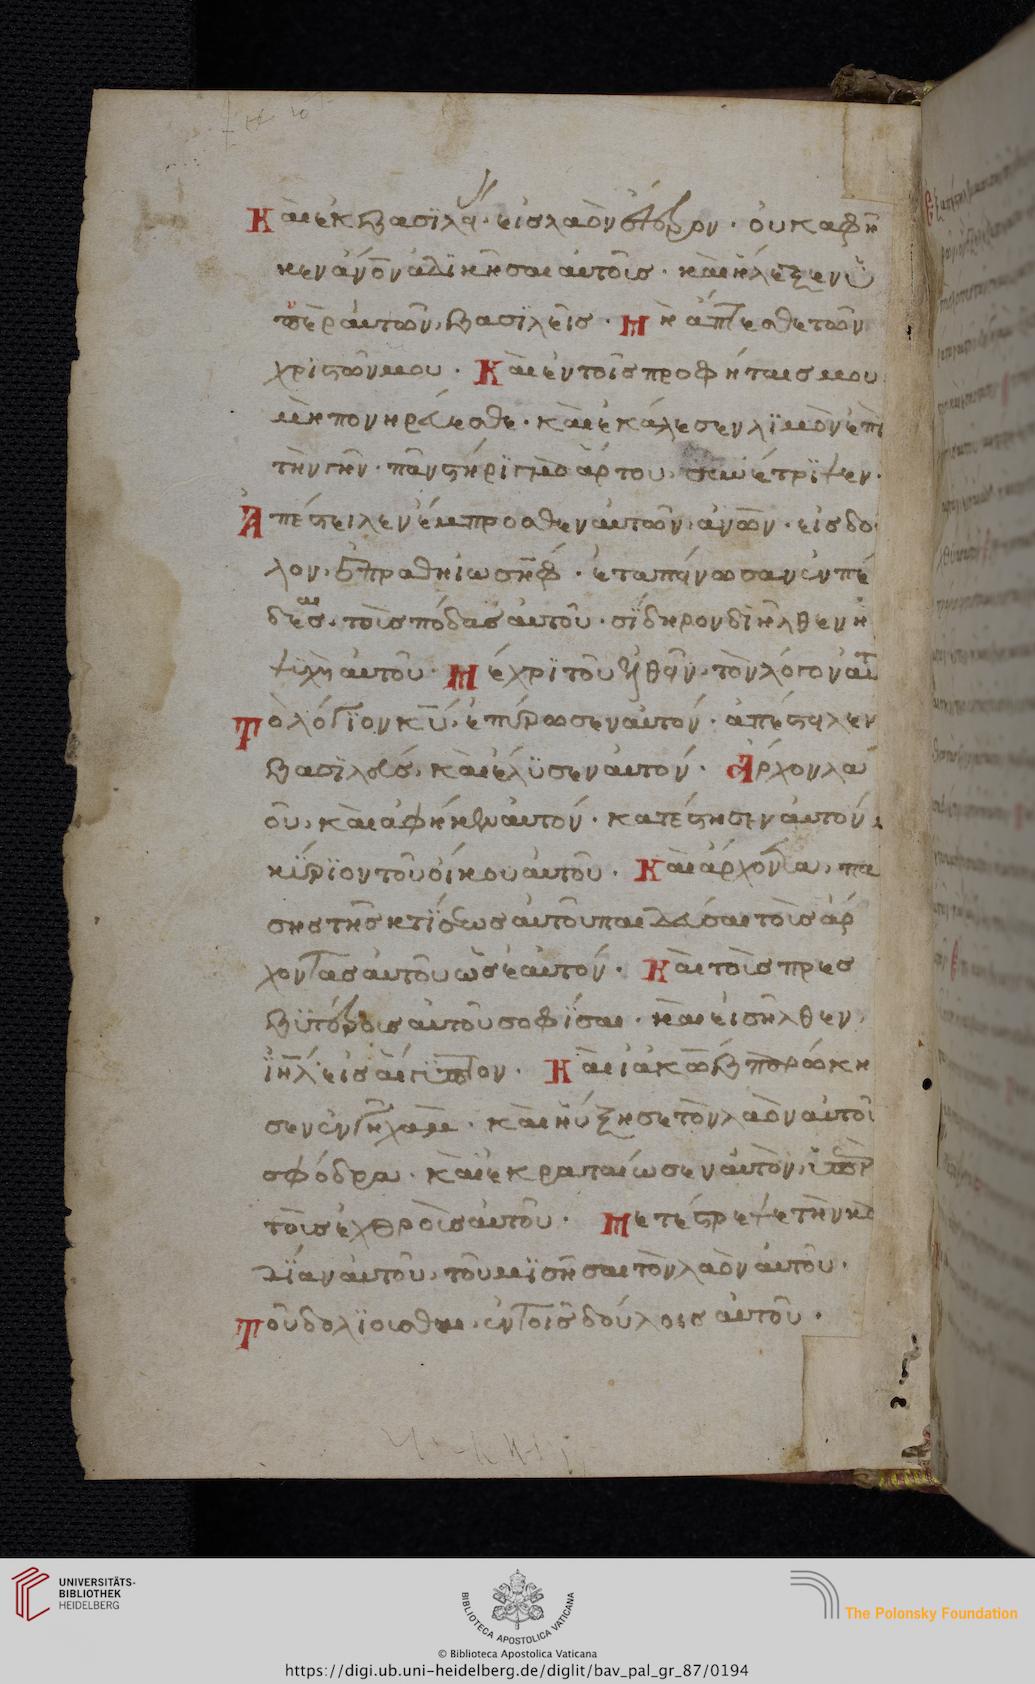 Καὶ ἐκ βασϊλείας εἰς λαὸν ἕτερον · οὐκ αφῆ
κεν ἄνον ἀδϊκῆσαι αὐτοῖς · καὶ ἤλεγξεν ὑ
πὲρ ἀυτῶν, βασϊλεῖς · Μὴ ἅπτεσθε τῶν
χριστῶν μου · Καὶ ἐν τοῖς προφήταις μου
μὴ πονηρεύεσθε · καὶ ἐκάλεσεν λϊμὸν ἐπὶ
τὴν γῆν · πᾶν στήριγμα ἄρτου, συνέτριψεν ·
Ἀπέστειλεν ἔμπροσθεν αυτῶν ἀνον · εἰς δο
λον, ἐπράθη ἰωσὴφ · εταπείνωσαν ἐν πέ
δαις, τοὶς πόδας αυτοῦ · σίδηρον διῆλθεν ἡ
ψϋχὴ αυτοῦ · Μέχρϊ τοῦ ἐλθεῖν, τὸν λόγον αὐτοῦ
Τὸ λόγϊον κυ, ἐπύρωσεν αυτόν · ἀπέστειλεν
βασϊλεύς, καὶ ἔλϋσεν αυτόν · Ἄρχον λα
οῦ, καὶ ἀφῆκεν αυτόν · κατέστησεν αυτόν
κύριον τοῦ οίκου αυτοῦ · Καὶ ἄρχοντα, πα
σης τῆς κτίσεως αυτοῦ παιδεύσαι τοὶς ἄρ
χοντας αυτοῦ ὡς ἑαυτόν · Καὶ τοὶς πρεσ
βϋτέροις αυτοῦ σοφίσαι · καὶ εἰσῆλθεν
ϊηλ εἰς αίγϋπτον · Καὶ ἰακὼβ παρώκη
σεν ἐν γῆ χὰμ · καὶ ηύξησε τὸν λαὸν αυτοῦ
σφόδρα · καὶ ἐκραταίωσεν αυτὸν, ὑπὲρ
τοὶς ἐχθροὶς αυτοῦ · Μετέστρεψε τὴν κὰρ
δίαν αυτοῦ, τοῦ μϊσῆσαι τὸν λαὸν αυτοῦ ·
Τοῦ δολϊοισθαι, ἐν τοῖς δούλοις αυτοῦ ·
UNIVERSITÄTS-
BIBLIOTHEK
HEIDELBERG
BIBLIOTECA APOSTOLICA VATICANA
The Polonsky Foundation
© Biblioteca Apostolica Vaticana
https://digi.ub.uni-heidelberg.de/diglit/bav_pal_gr_87/0194